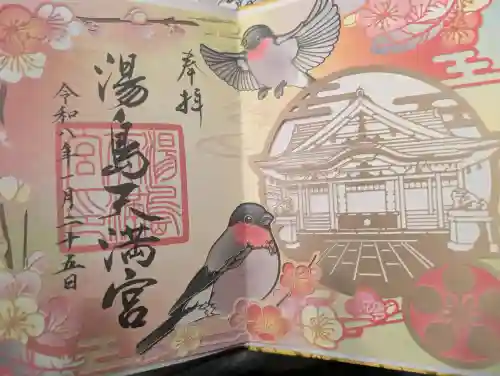 奉拝
湯島天満宮
令和八年一月二十五日
湯島
宮